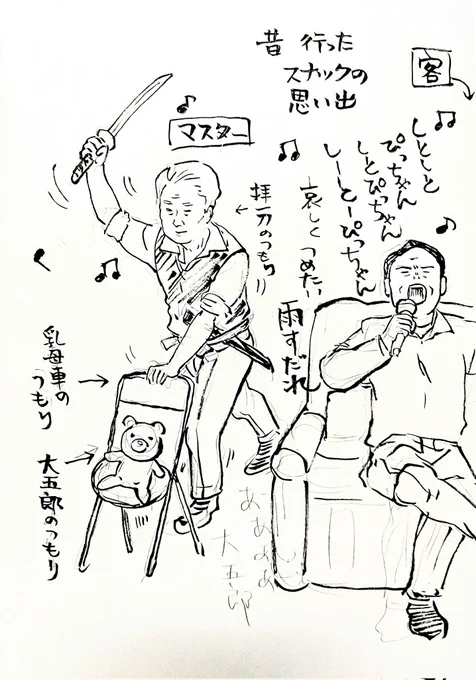 昔 行った
スナックの
思い出
客
マスター
拝一刀のつもり
しとしと
ぴっちゃん
しとぴっちゃん
しーとーぴっちゃん
哀しくつめたい
雨すだれ
乳母車の
つもり
大五郎のつもり
ああああ
大五郎